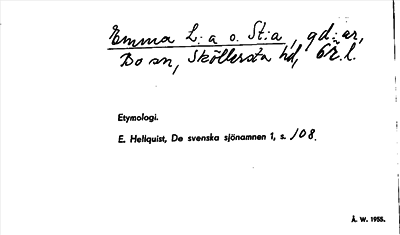 Emma L:a o. St:a, gd:ar,
Bo sn, Sköllersta hd, Ör.l.
Etymologi.
E. Hellquist, De svenska sjönamnen 1, s. 108.
Å. W. 1955.